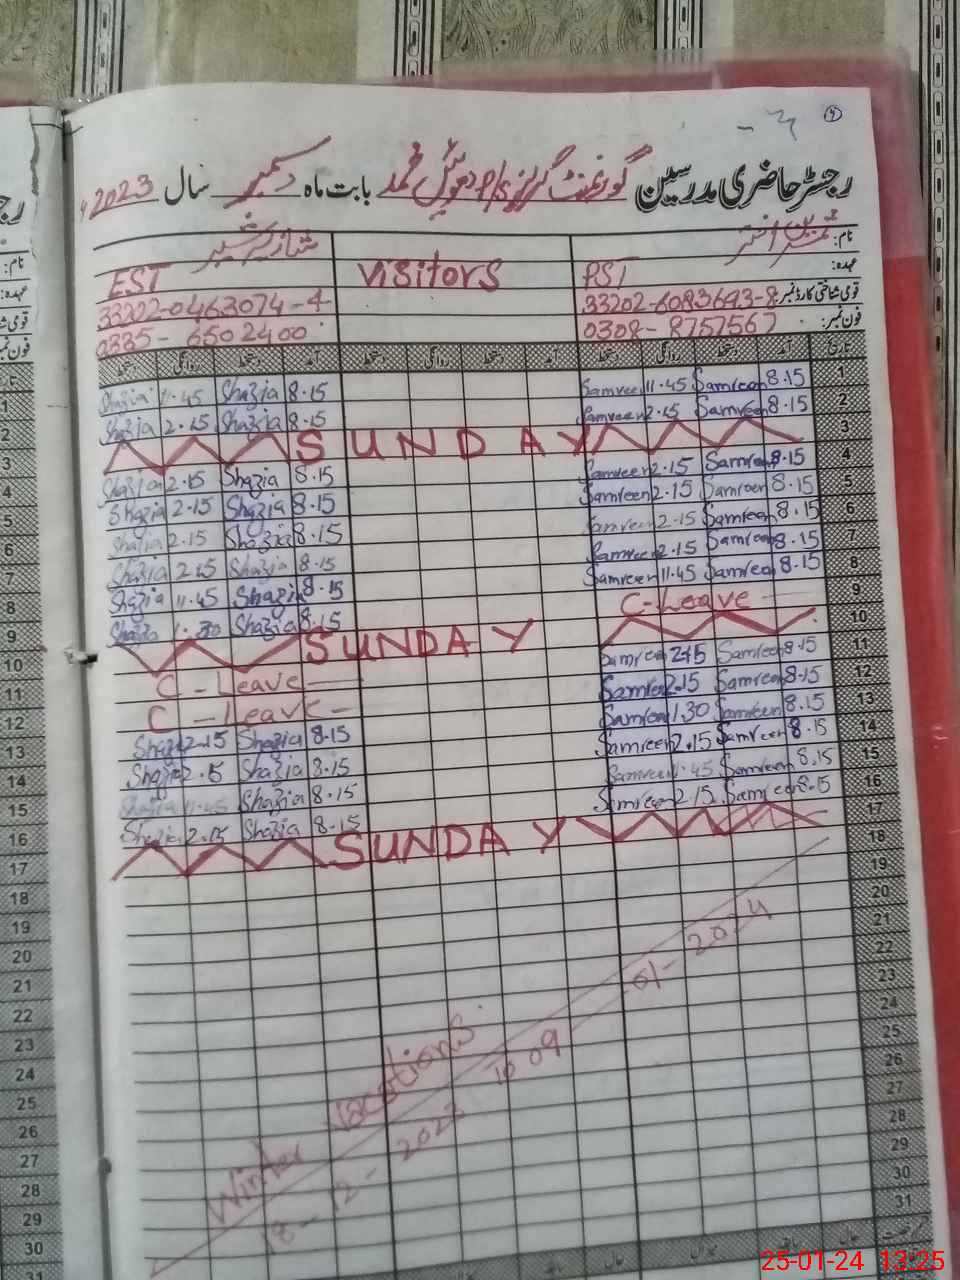 رجسٹر حاضری مدرسین گورنمنٹ گرلز P/S بابت ماہ دسمبر سال 2023ء
نام:
عہدہ: PST Visitors EST
قومی شناختی کارڈ نمبر: 33202-6083693-8 33202-0463074-4
فون نمبر: 0308-8757567 0335-6502400
تاریخ آمد دستخط روانگی دستخط آمد دستخط روانگی دستخط آمد دستخط روانگی دستخط
1 8.15 Samreen 11.45 Samreen 8.15 Shazia 11.45 Shazia
2 8.15 Samreen 2.15 Samreen 8.15 Shazia 2.15 Shazia
3 SUNDAY
4 8.15 Samreen 2.15 Samreen 8.15 Shazia 2.15 Shazia
5 8.15 Samreen 2.15 Samreen 8.15 Shazia 2.15 Shazia
6 8.15 Samreen 2.15 Samreen 8.15 Shazia 2.15 Shazia
7 8.15 Samreen 2.15 Samreen 8.15 Shazia 2.15 Shazia
8 8.15 Samreen 11.45 Samreen 8.15 Shazia 11.45 Shazia
9 C-Leave 8.15 Shazia 1.30 Shazia
10 SUNDAY
11 8.15 Samreen 2.15 Samreen C-Leave
12 8.15 Samreen 2.15 Samreen C-Leave
13 8.15 Samreen 1.30 Samreen 8.15 Shazia 2.15 Shazia
14 8.15 Samreen 2.15 Samreen 8.15 Shazia 2.15 Shazia
15 8.15 Samreen 11.45 Samreen 8.15 Shazia 11.45 Shazia
16 8.15 Samreen 2.15 Samreen 8.15 Shazia 2.15 Shazia
17 SUNDAY
18
19
20
21
22
23
24
25
26
27
28
29
30
31
Winter Vacations.
18-12-2023 to 09-01-2024
25-01-24 13:25